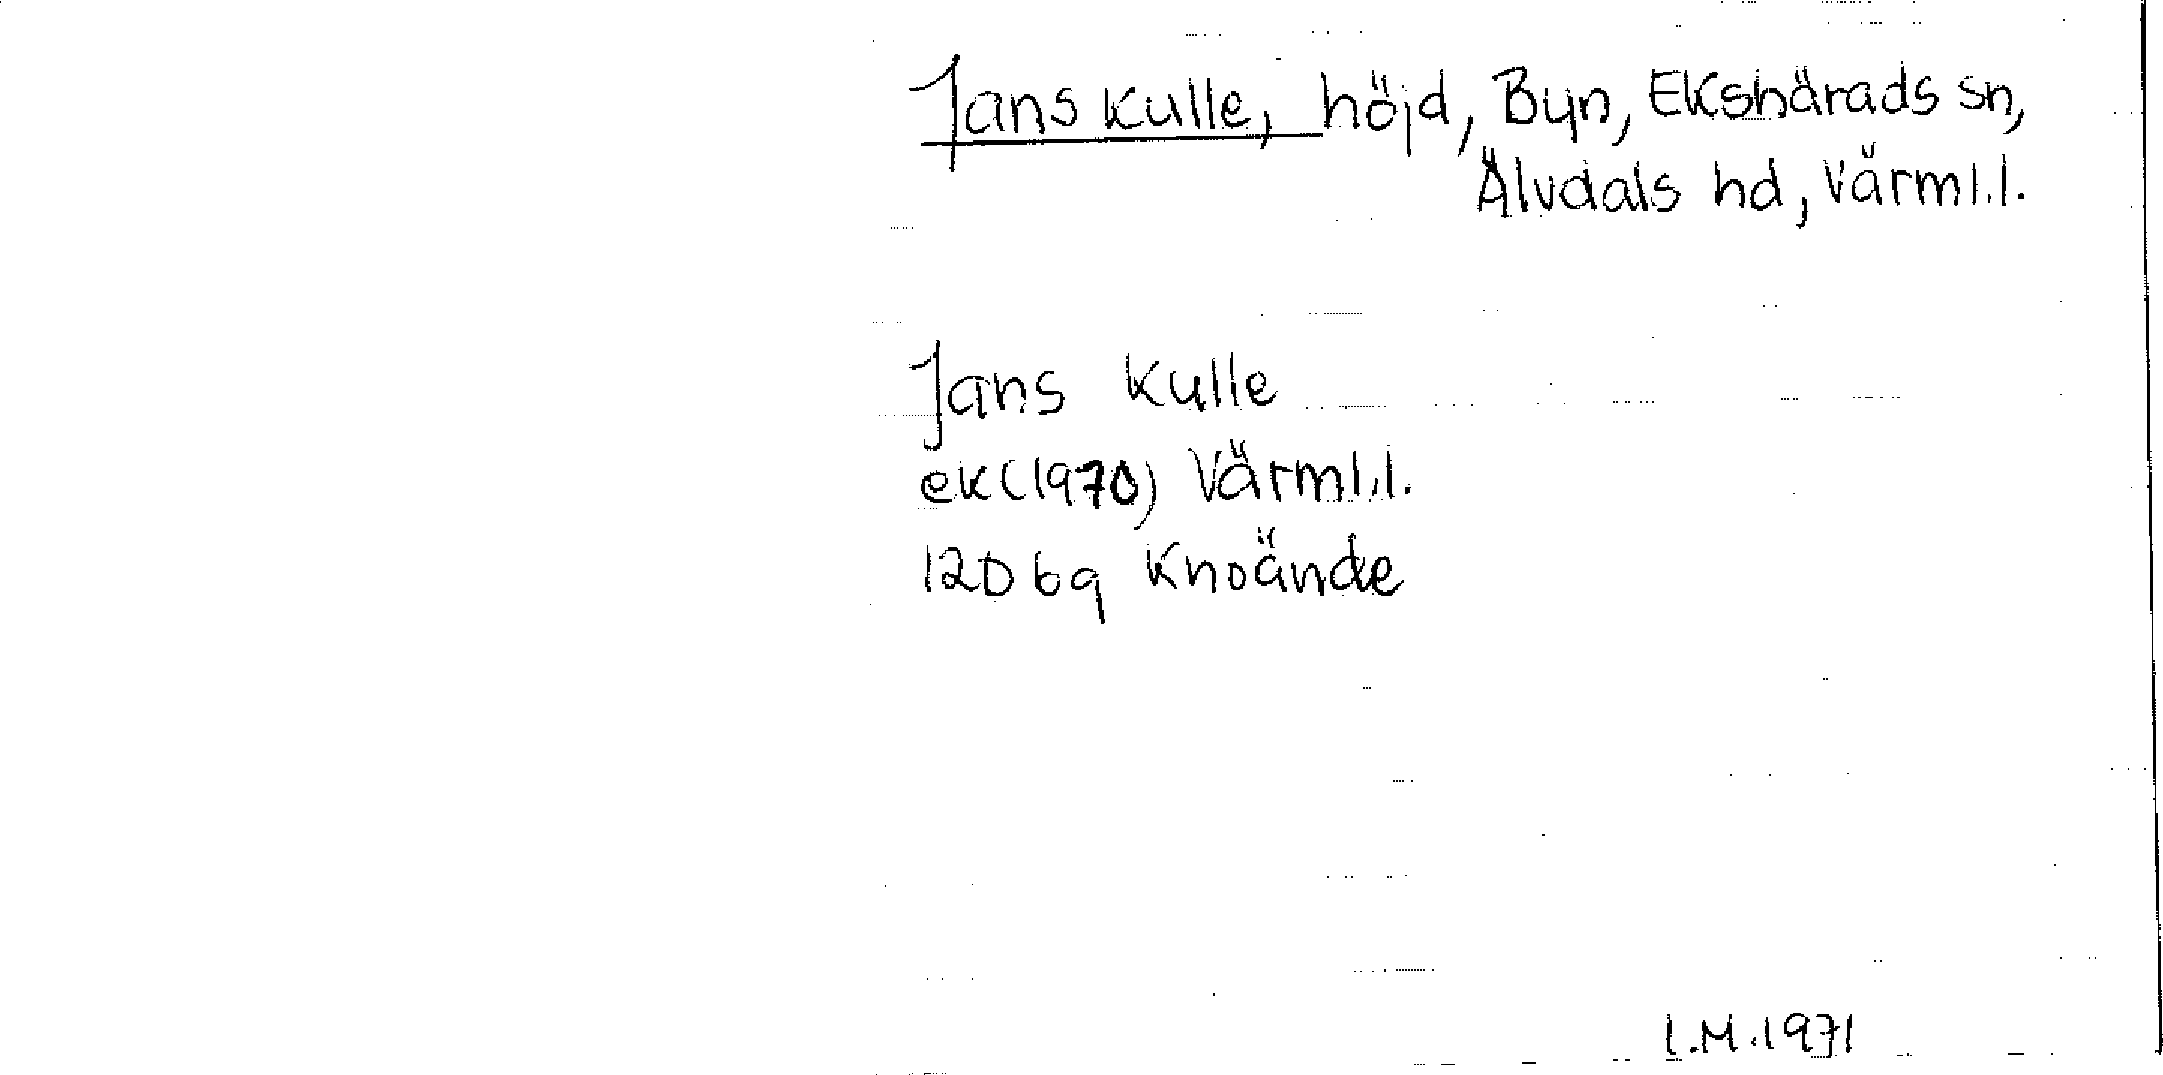 Jans kulle, höjd, Byn, Ekshärads sn,
Älvdals hd, Värml.l.
Jans kulle
ek (1970) Värml.l.
12D 6g Knoände
I.M. 1971